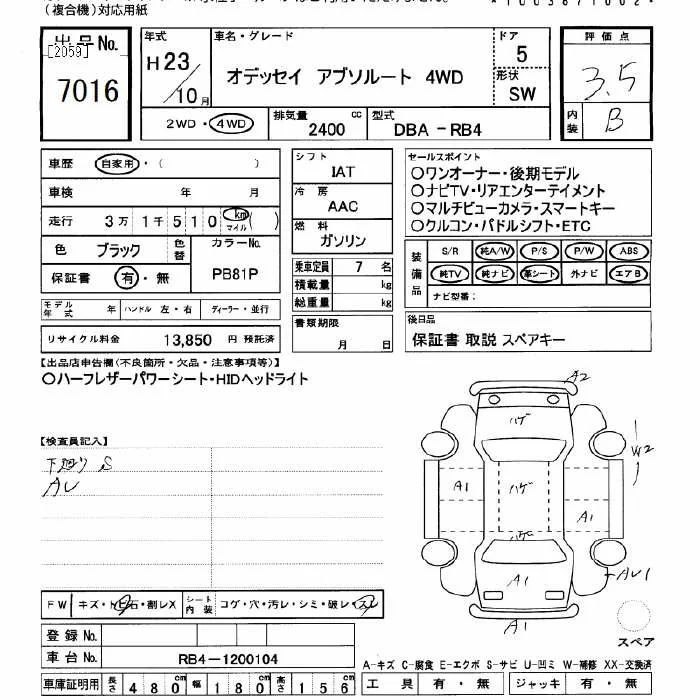 (複合機)対応用紙
出品No.
[2059]
7016
年式
H23/10月
車名・グレード
オデッセイ アブソルート 4WD
ドア
5
形状
SW
評価点
3.5
内装
B
2WD・4WD
排気量
2400 cc
型式
DBA-RB4
車歴 自家用・( )
車検 年 月
走行 3万1千510 km マイル ( )
色 ブラック
色替
カラーNo.
PB81P
保証書 有・無
モデル年式 年
ハンドル 左・右
ディーラー・並行
リサイクル料金 13,850 円 預託済
シフト
IAT
冷房
AAC
燃料
ガソリン
乗車定員 7 名
積載量 kg
総重量 kg
書類期限
月 日
セールスポイント
○ワンオーナー・後期モデル
○ナビTV・リアエンターテイメント
○マルチビューカメラ・スマートキー
○クルコン・パドルシフト・ETC
装備品
S/R 純A/W P/S P/W ABS
純TV 純ナビ 革シート 外ナビ エアB
ナビ型番:
後日品
保証書 取説 スペアキー
【出品店申告欄(不良箇所・欠品・注意事項等)】
○ハーフレザーパワーシート・HIDヘッドライト
【検査員記入】
下廻り S
AU
A2
ハゲ
W2
A1
ハゲ
A1
ハゲ
A1
AU1
A1
スペア
FW キズ・飛石・割レX
シート内装 コゲ・穴・汚レ・シミ・破レ・スレ
登録No.
車台No. RB4-1200104
A-キズ C-腐食 E-エクボ S-サビ U-凹ミ W-補修 XX-交換済
車庫証明用 長さ 480 幅 180 高さ 156
工具 有・無 ジャッキ 有・無